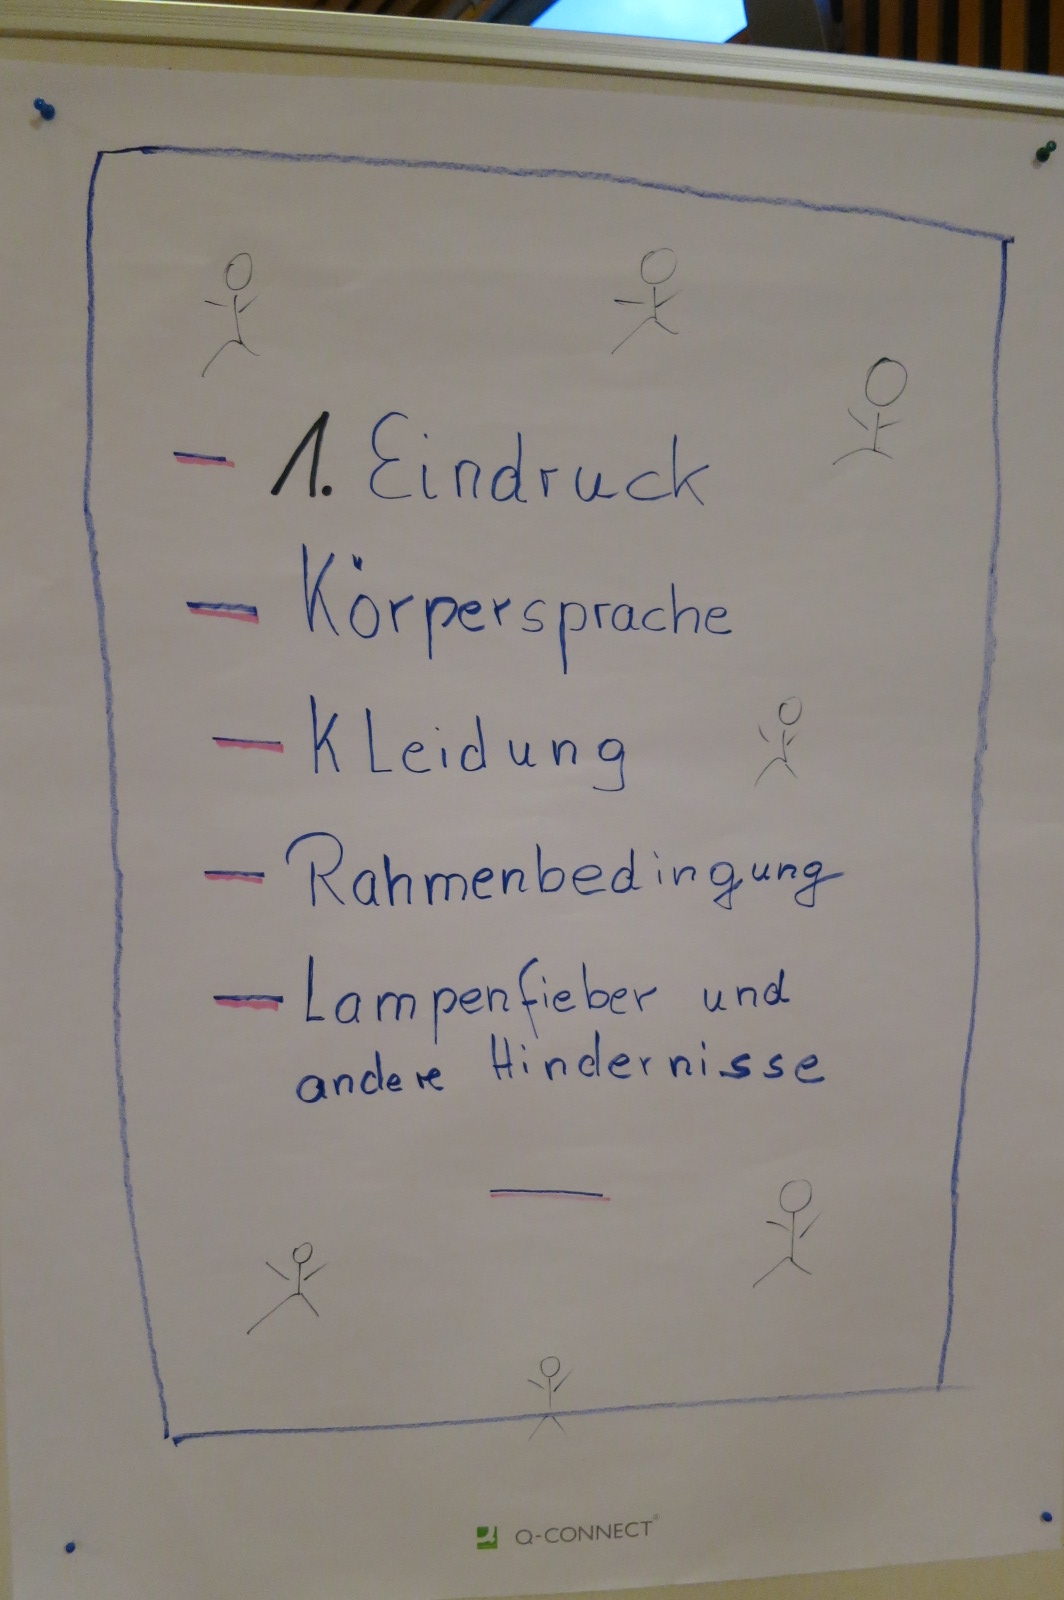 - 1. Eindruck
- Körpersprache
- Kleidung
- Rahmenbedingung
- Lampenfieber und
andere Hindernisse
Q-CONNECT®